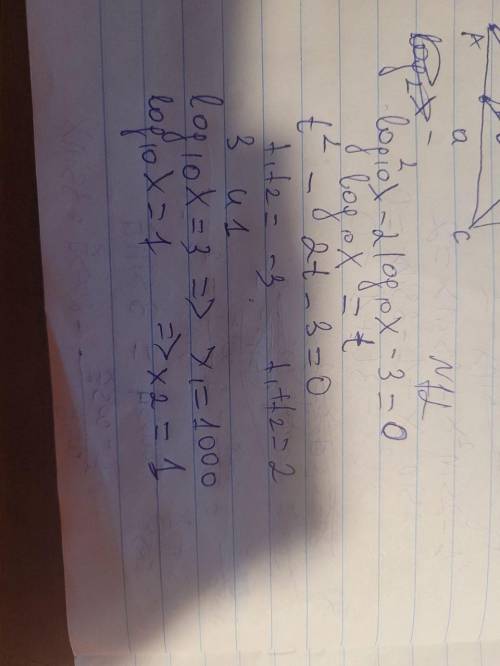 A a C
№1
log²₁₀x - 2log₁₀x - 3 = 0
log₁₀x = t
t² - 2t - 3 = 0
t₁t₂ = -3 t₁+t₂ = 2
3 и 1
log₁₀x = 3 => x₁ = 1000
log₁₀x = 1 => x₂ = 1